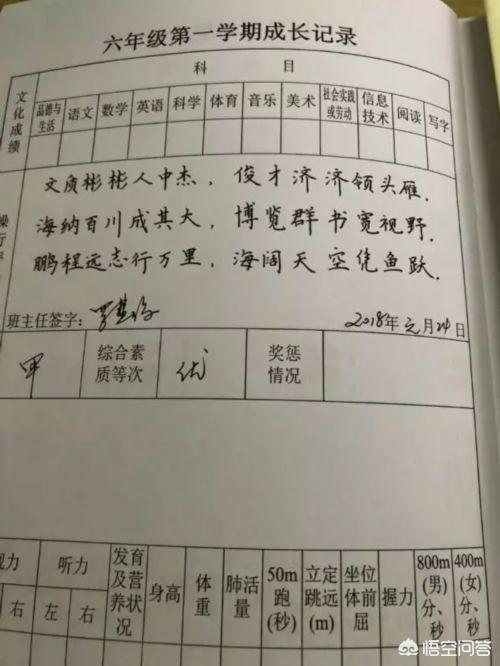 六年级第一学期成长记录
科 目
文化成绩 品德与生活 语文 数学 英语 科学 体育 音乐 美术 社会实践或劳动 信息技术 阅读 写字
操行
文质彬彬人中杰，俊才济济领头雁．
海纳百川成其大，博览群书宽视野．
鹏程远志行万里，海阔天空凭鱼跃．
班主任签字： 2018年元月24日
甲 综合素质等次 优 奖惩情况
视力 听力 发育及营养状况 身高 体重 肺活量 50m跑(秒) 立定跳远(m) 坐位体前屈 握力 800m(男)分、秒 400m(女)分、秒
右 左 右
悟空问答